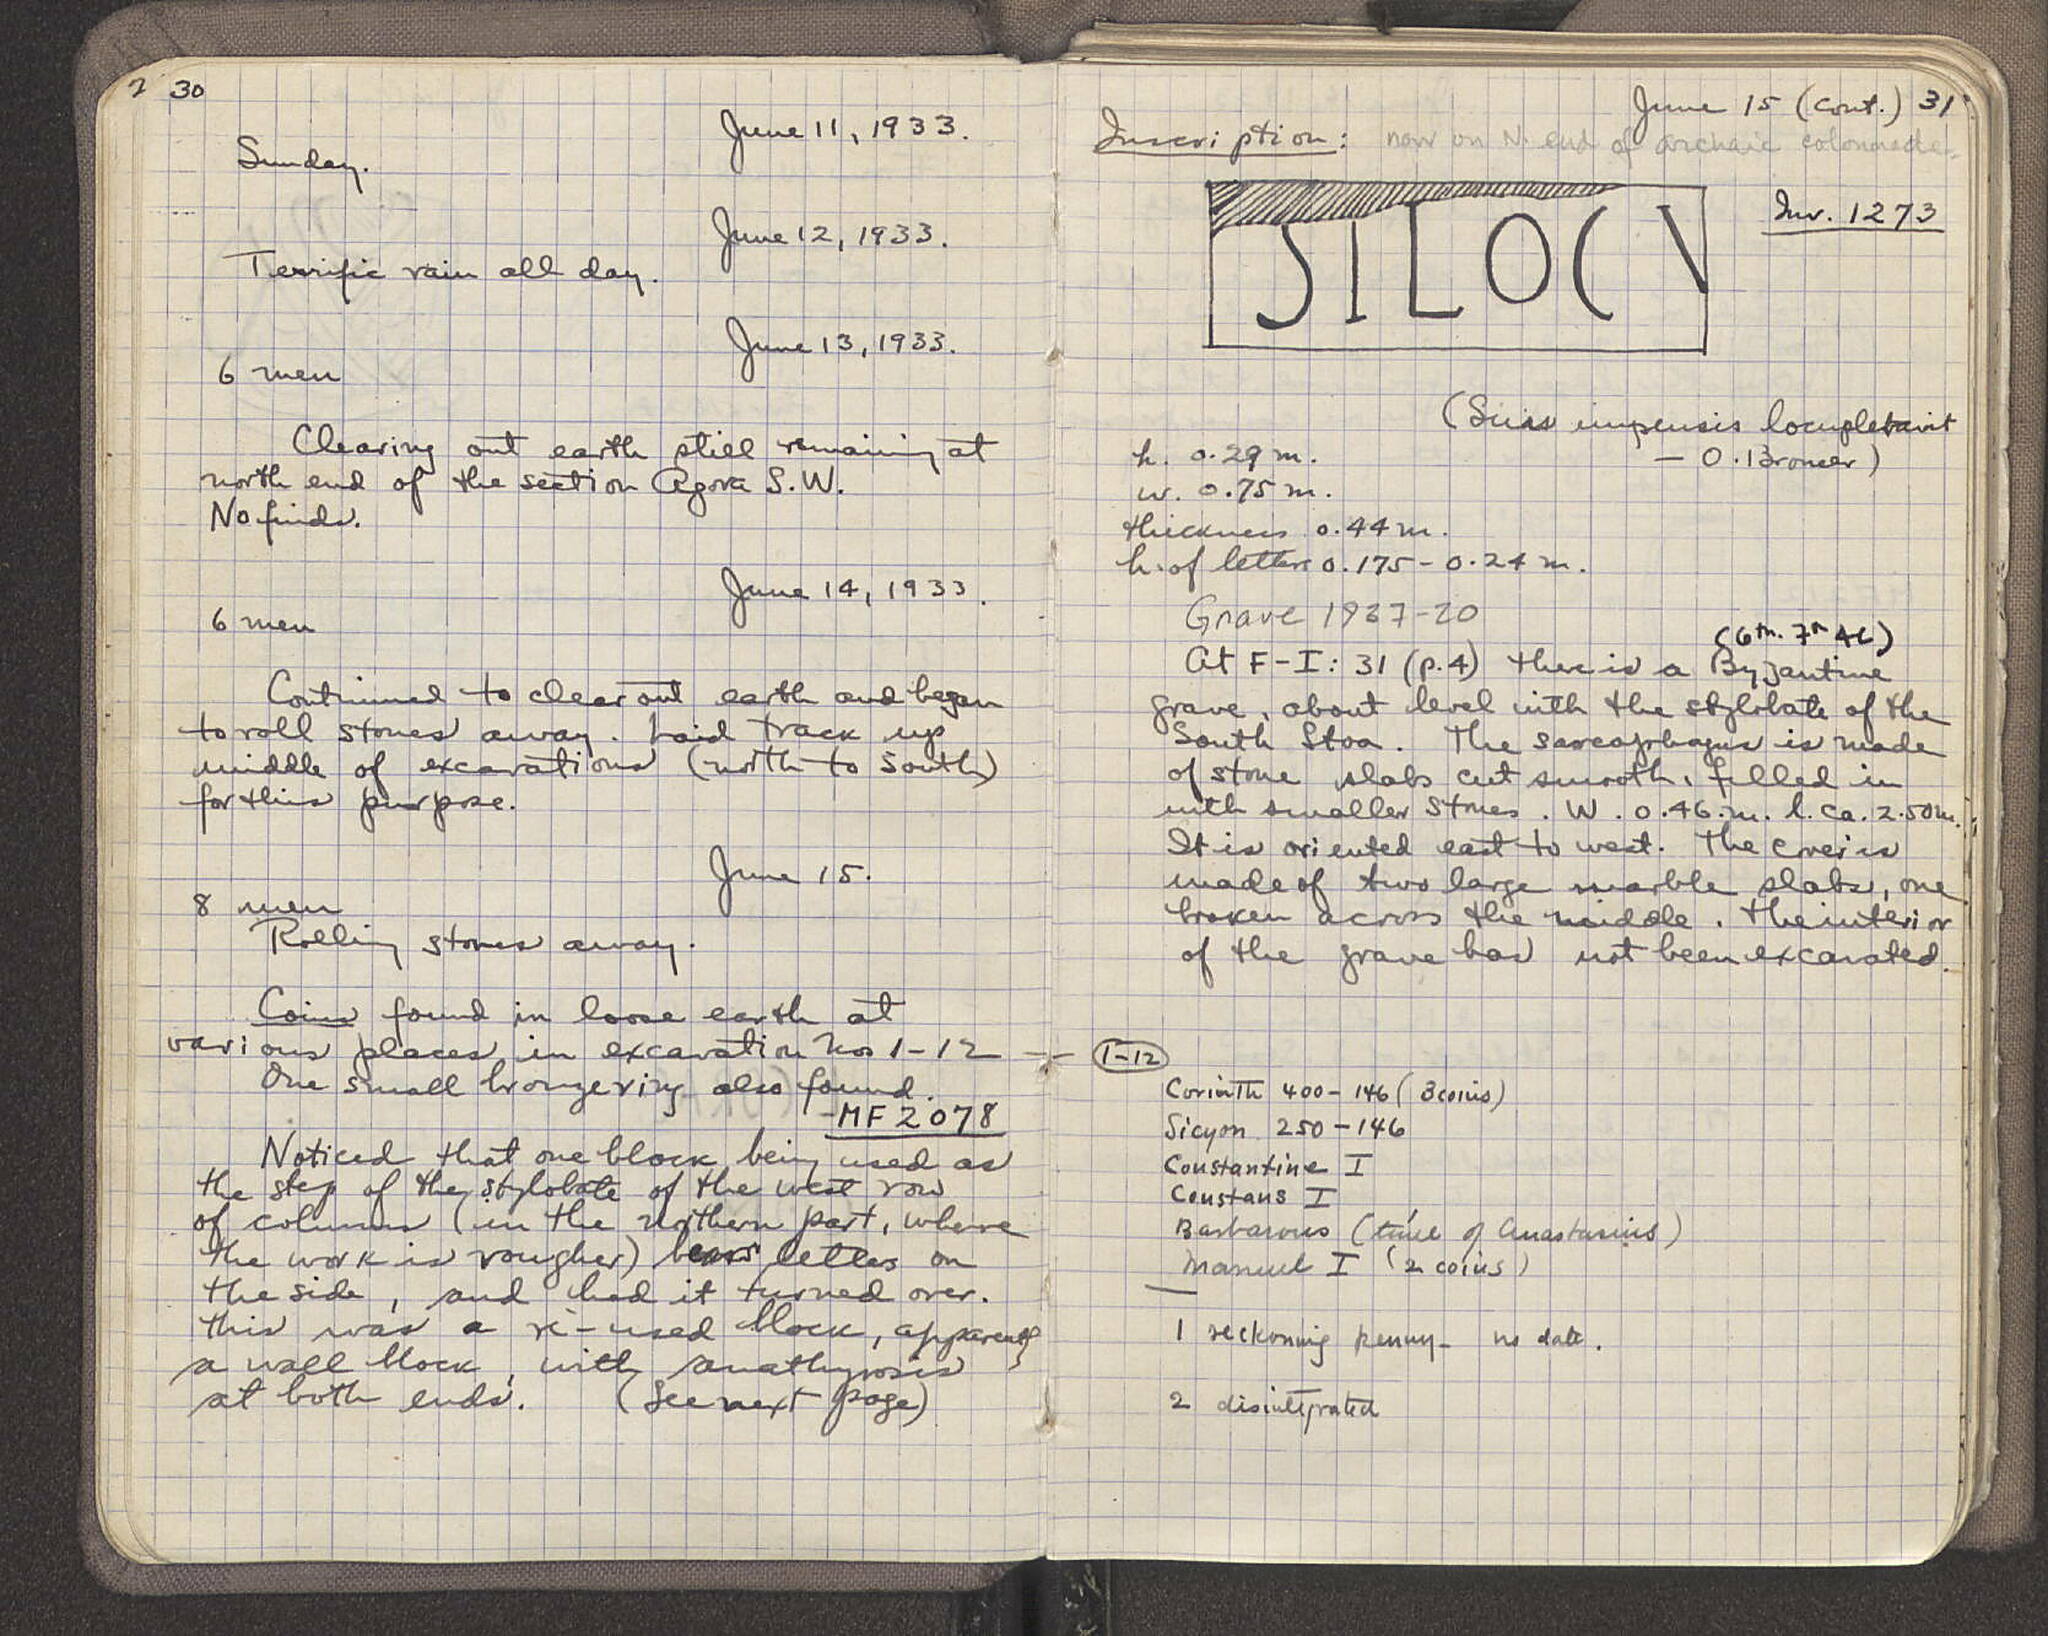 2 30
June 11, 1933.
Sunday.
June 12, 1933.
Terrific rain all day.
June 13, 1933.
6 men
Clearing out earth still remaining at
north end of the section Agora S.W.
No finds.
June 14, 1933.
6 men
Continued to clear out earth and began
to roll stones away. Laid track up
middle of excavations (north to south)
for this purpose.
June 15.
8 men
Rolling stones away.
Coins found in loose earth at
various places in excavation Nos 1-12 —
One small bronze ring also found.
- MF 2078
Noticed that one block being used as
the step of the stylobate of the west row
of columns (in the northern part, where
the work is rougher) bears letters on
the side, and had it turned over.
This was a re-used block, apparently
a wall block, with anathyrosis
at both ends. (See next page)
June 15 (cont.) 31
Inscription: now on N. end of archaic colonnade.
Inv. 1273
SILOC
(Suis impensis locupletavit
- O. Broneer)
h. 0.29 m.
w. 0.75 m.
thickness 0.44 m.
h. of letters 0.175 - 0.24 m.
Grave 1937-20
(6th. 7th AC)
At F-I: 31 (p.4) there is a Byzantine
grave, about level with the stylobate of the
South Stoa. The sarcophagus is made
of stone slabs cut smooth, filled in
with smaller stones. W. 0.46 m. l. ca. 2.50 m.
It is oriented east to west. The cover is
made of two large marble slabs, one
broken across the middle. The interior
of the grave has not been excavated.
1-12
Corinth 400-146 (3 coins)
Sicyon 250-146
Constantine I
Constans I
Barbarous (time of Anastasius)
Manuel I (2 coins)
1 reckoning penny - no date.
2 disintegrated